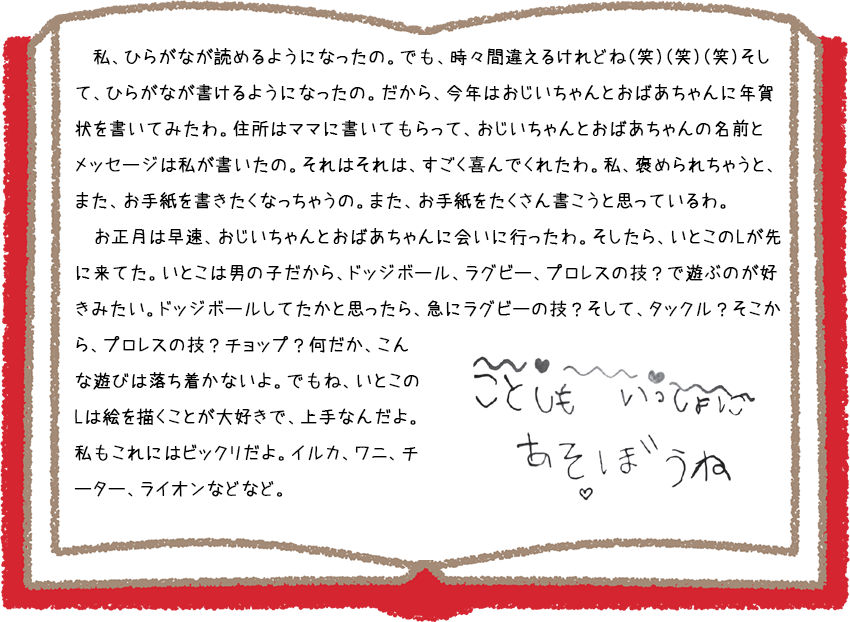 私、ひらがなが読めるようになったの。でも、時々間違えるけれどね(笑)(笑)(笑)そし
て、ひらがなが書けるようになったの。だから、今年はおじいちゃんとおばあちゃんに年賀
状を書いてみたわ。住所はママに書いてもらって、おじいちゃんとおばあちゃんの名前と
メッセージは私が書いたの。それはそれは、すごく喜んでくれたわ。私、褒められちゃうと、
また、お手紙を書きたくなっちゃうの。また、お手紙をたくさん書こうと思っているわ。
お正月は早速、おじいちゃんとおばあちゃんに会いに行ったわ。そしたら、いとこのLが先
に来てた。いとこは男の子だから、ドッジボール、ラグビー、プロレスの技?で遊ぶのが好
きみたい。ドッジボールしてたかと思ったら、急にラグビーの技?そして、タックル?そこか
ら、プロレスの技?チョップ?何だか、こん
な遊びは落ち着かないよ。でもね、いとこの
Lは絵を描くことが大好きで、上手なんだよ。
私もこれにはビックリだよ。イルカ、ワニ、チ
ーター、ライオンなどなど。
ことしも いっしょに
あそぼうね